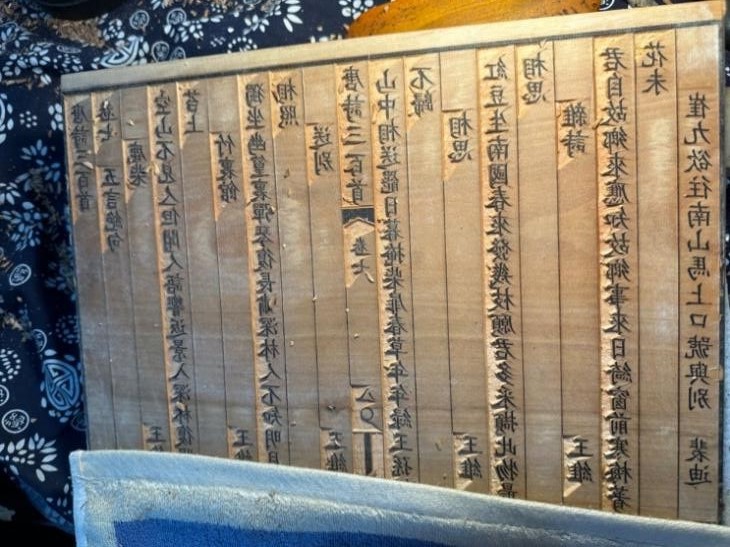 唐詩三百首
卷七 五言絕句
鹿柴 王
空山不見人但聞人語響返景入深林復照
苔上
竹裏館 王維
獨坐幽篁裏彈琴復長嘯深林人不知明月
相照
送別 王維
唐詩三百首 卷七
山中相送罷日暮掩柴扉春草年年綠王孫
不歸
相思 王維
紅豆生南國春來發幾枝願君多采擷此物最
相思
雜詩 王維
君自故鄉來應知故鄉事來日綺窗前寒梅著
花未
崔九欲往南山馬上口號與別 裴迪